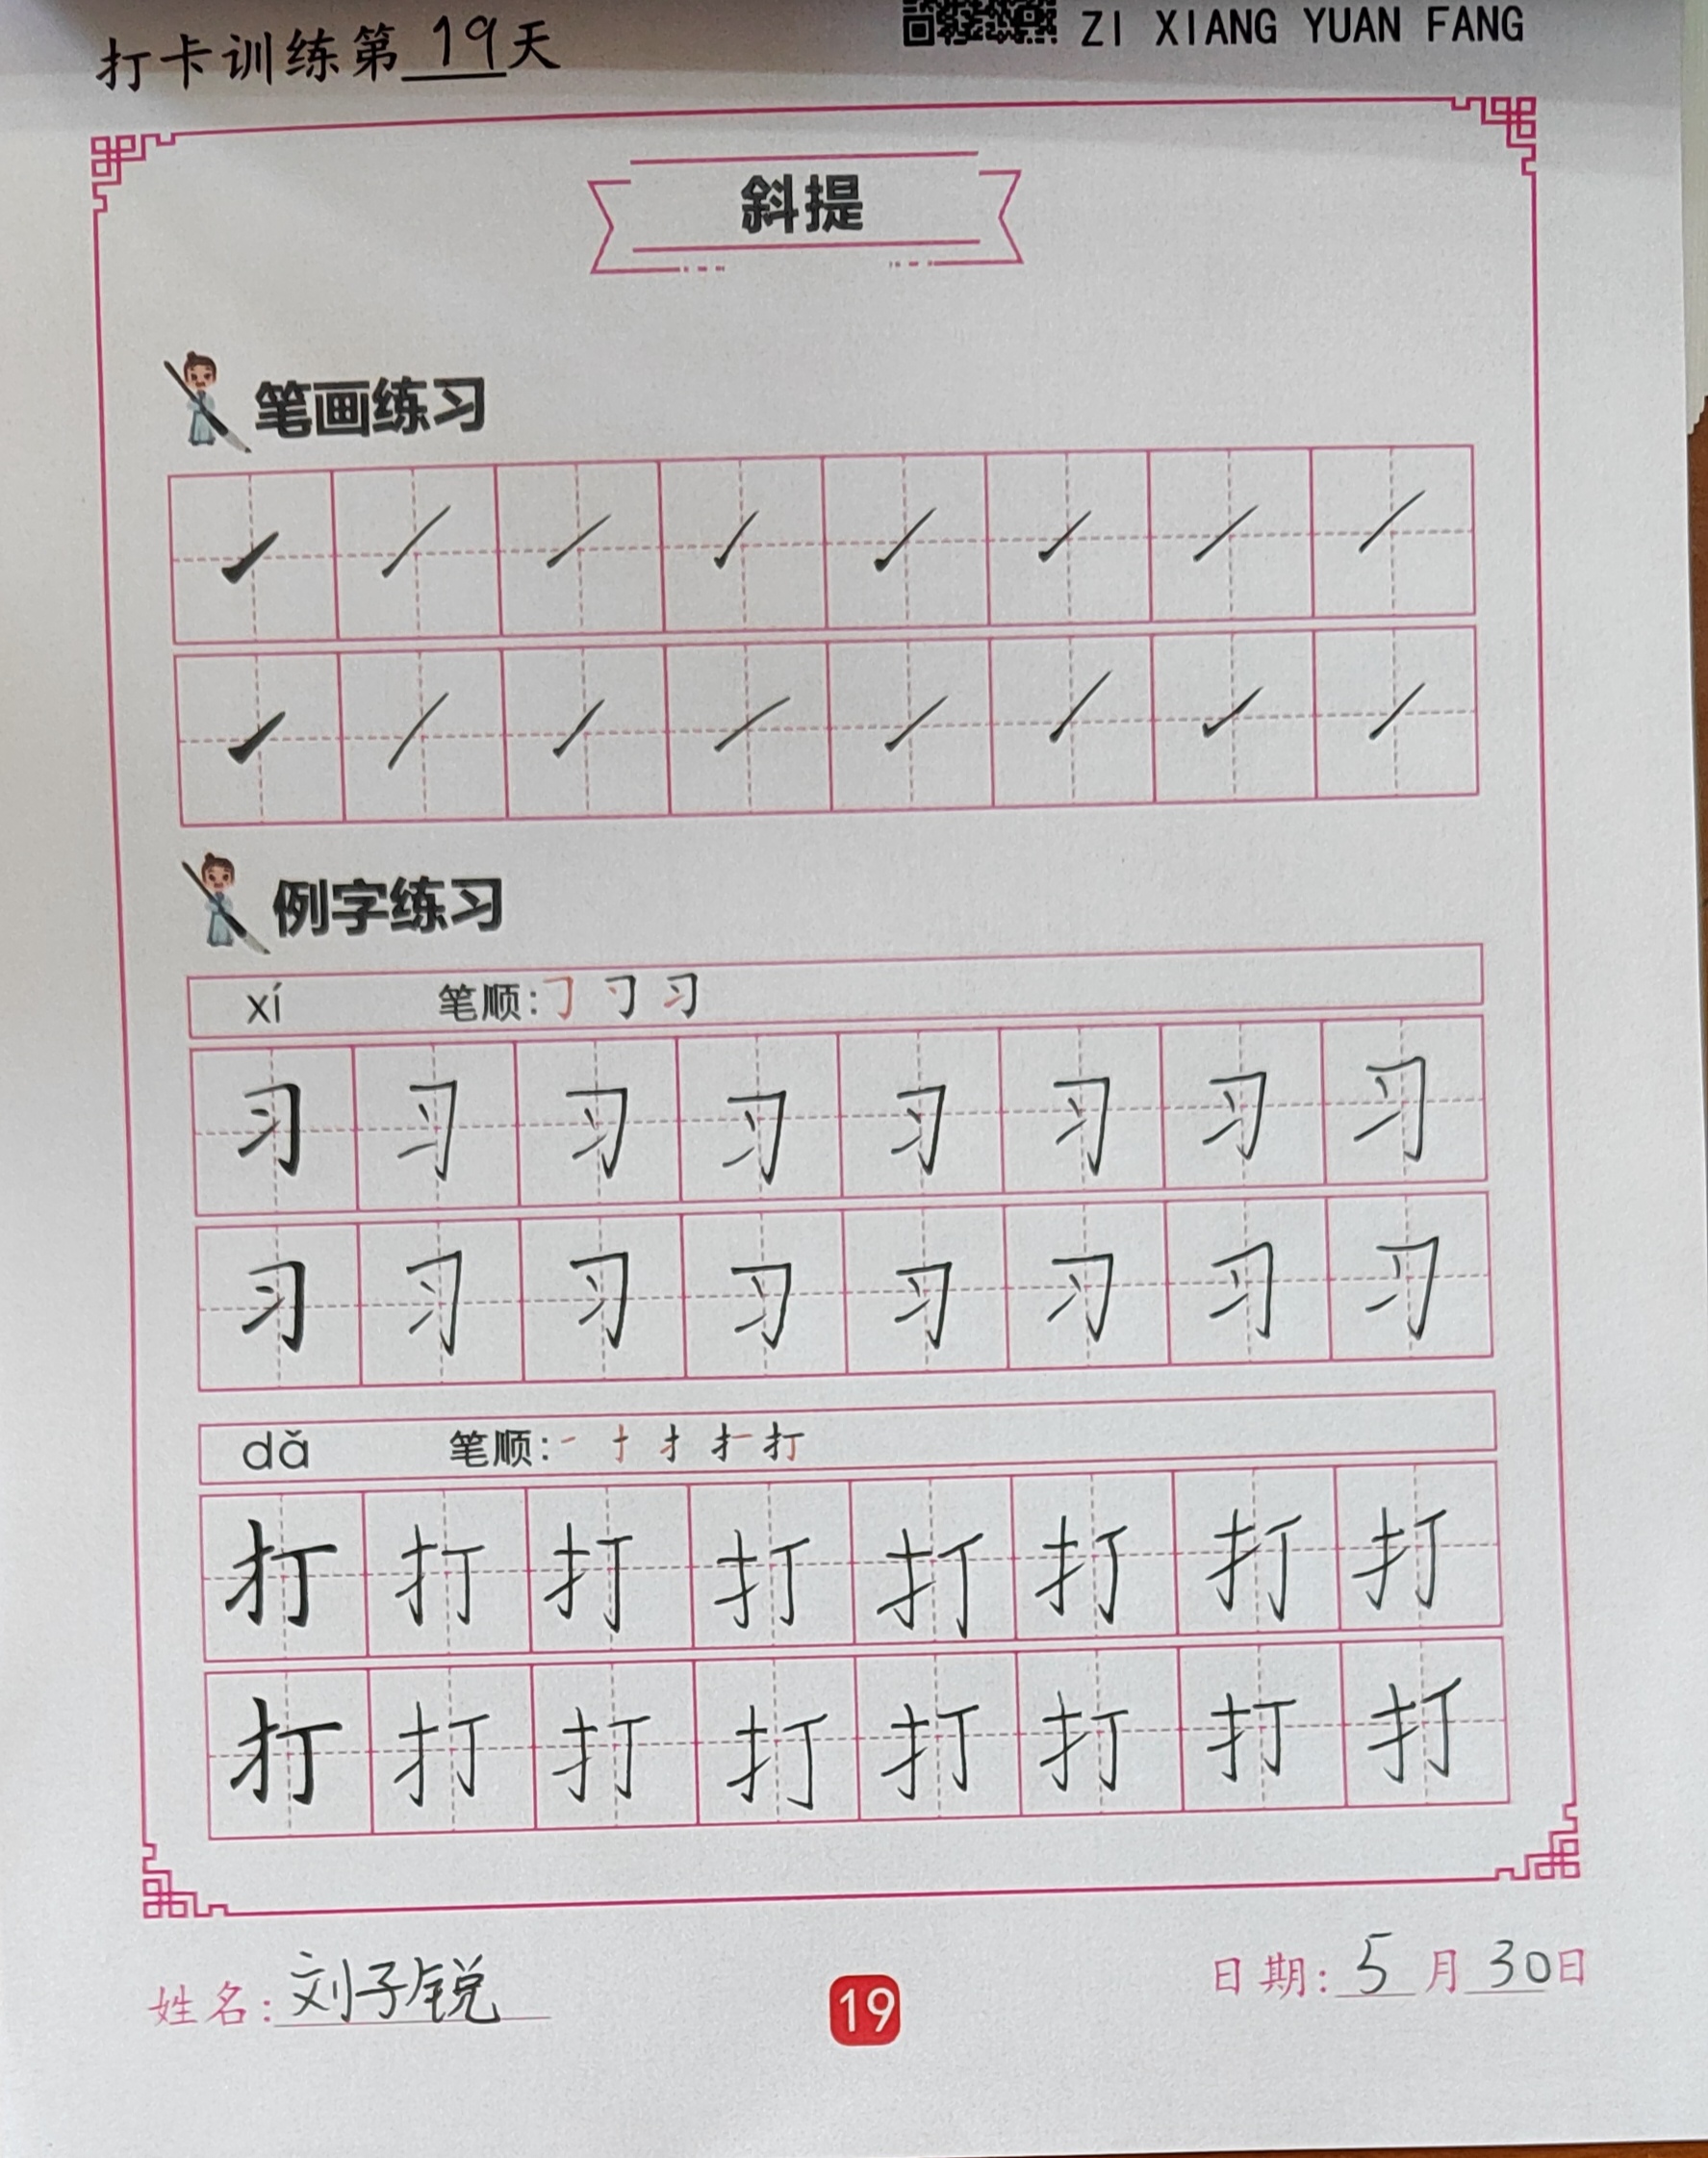 打卡训练第19天
ZI XIANG YUAN FANG
斜提
笔画练习
例字练习
xí 笔顺:
习 习 习 习 习 习 习 习
习 习 习 习 习 习 习 习
dǎ 笔顺:
打 打 打 打 打 打 打 打
打 打 打 打 打 打 打 打
姓名:刘子锐
19
日期:5月30日